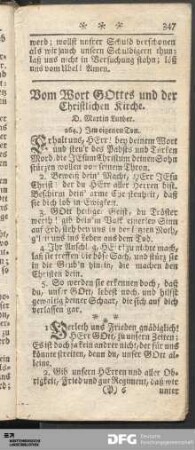 * * * 347
werd; wollst unsrer Schuld verschonen
als wir auch unsern Schuldigern thun;
laß uns nicht in Versuchung stehn; löß
uns vom Übel! Amen.
Vom Wort GOttes und der
Christlichen Kirche.
D. Martin Luther.
264.) In eigenen Ton.
Erhalt uns, HErr! bey deinem Wort
und steur des Pabsts und Türken
Mord, die JEsum Christum deinen Sohn
stürzen wollen von seinem Thron.
2. Beweis dein' Macht, HErr JEsu
Christ! der du HErr aller Herren bist.
Beschirm dein' arme Christenheit, daß
sie dich lob in Ewigkeit.
3. GOtt heilger Geist, du Tröster
werth! gib dein'm Volk einerley Sinn
auf Erd, steh bey uns in der letzten Noth,
g'leit uns ins Leben aus dem Tod.
4. Ihr Anschl. HErr zu nichte mach,
laß sie treffen die böse Sach, und stürz sie
in die Grub'n hinein, die machen den
Christen dein.
5. So werden sie erkennen doch, daß
du, unser GOtt, lebest noch, und hilfst
gewaltig deiner Schaar, die sich auf dich
verlassen gar.
* * *
1. Verleih uns Frieden gnädiglich!
HErr GOtt, zu unsern Zeiten;
Es ist doch ja kein andrer nicht, der für uns
könnte streiten, denn du, unser GOtt al-
leine.
2. Gib unsern HErren und aller Ob-
rigkeit, Fried und gut Regiment, daß wir
unter
DFG
Deutsche
Forschungsgemeinschaft